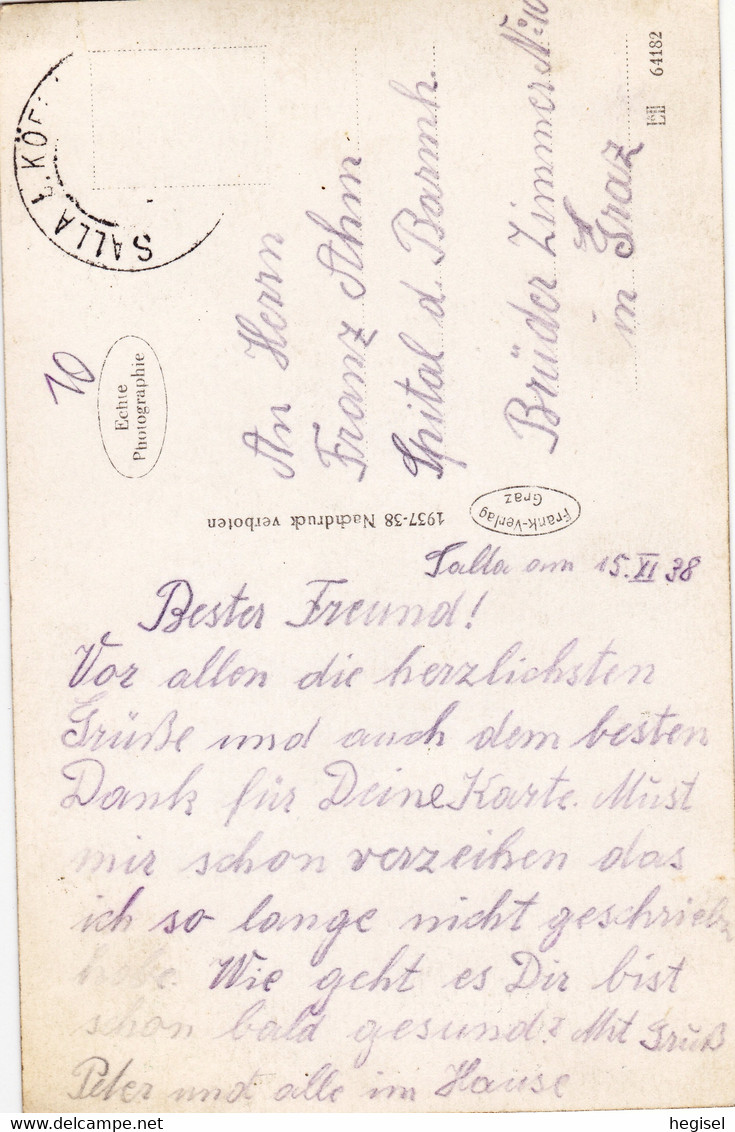 SALLA b. KÖF
10
Echte
Photographie
An Herrn
Franz Ahm
Spital d. Barmh.
Brüder Zimmer No 10
in Graz
64182
1937-38 Nachdruck verboten
Frank-Verlag
Graz
Salla am 15. XI 38
Bester Freund!
Vor allen die herzlichsten
Grüße und auch dem besten
Dank für Deine Karte. Must
mir schon verzeihen das
ich so lange nicht geschrieben
habe. Wie geht es Dir bist
schon bald gesund? Mit Gruß
Peter und alle im Hause
hegisel